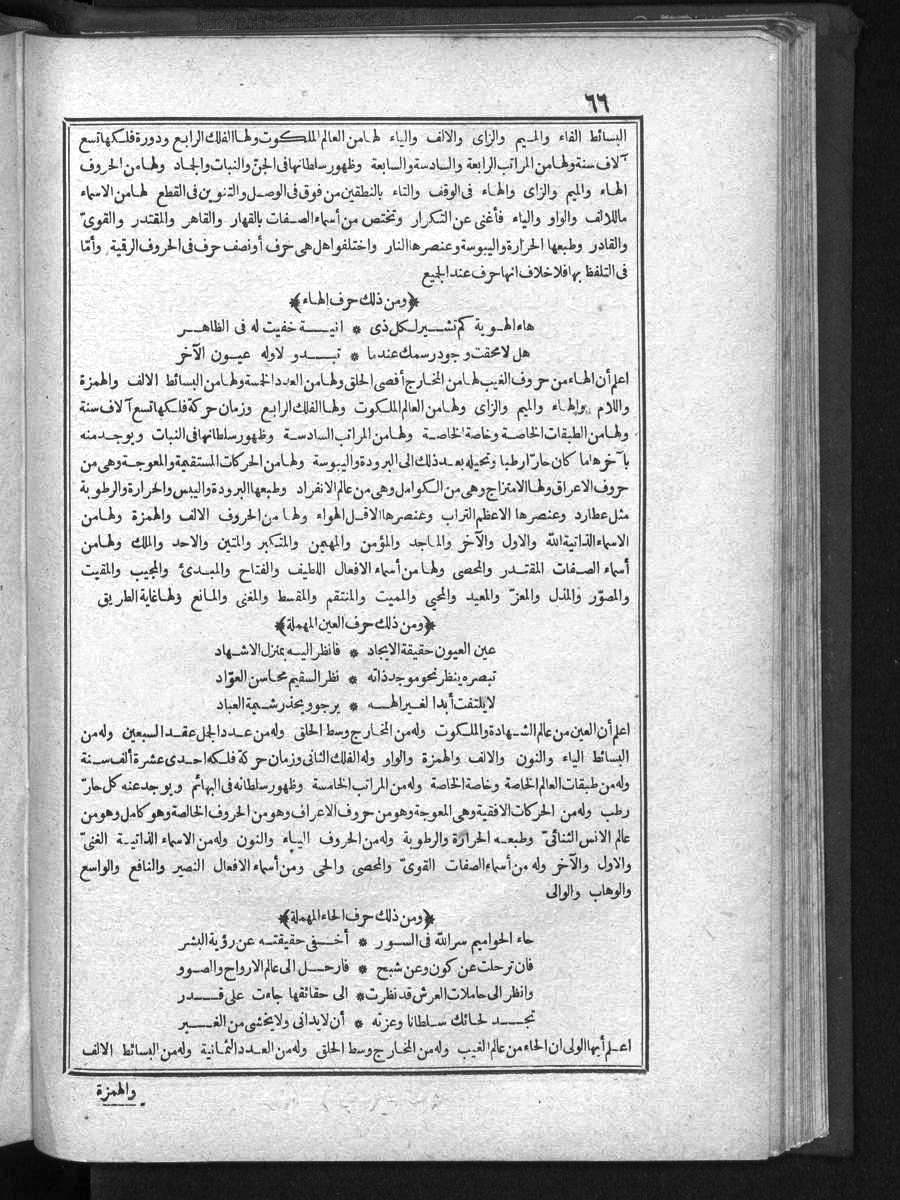 ٦٦
البسائط الفاء والميم والزاى والالف والياء لها من العالم الملكوت ولها الفلك الرابع ودورة فلكها تسع
آلاف سنة ولها من المراتب الرابعة والسادسة والسابعة وظهور سلطانها فى الجن والنبات والجماد ولها من الحروف
الهاء والميم والزاى والهاء فى الوقف والتاء بالنطقين من فوق فى الوصل والتنوين فى القطع لها من الاسماء
ما للالف والواو والياء فأغنى عن التكرار وتختص من أسماء الصفات بالقهار والقاهر والمقتدر والقوىّ
والقادر وطبعها الحرارة واليبوسة وعنصرها النار واختلفوا هل هى حرف أو نصف حرف فى الحروف الرقمية وأمّا
فى التلفظ بها فلا خلاف انها حرف عند الجميع
﴿ومن ذلك حرف الهاء﴾
هاء الهوية كم تشير لكل ذى * انية خفيت له فى الظاهر
هل لا محقت وجود رسمك عندما * تبدو لاوله عيون الآخر
اعلم أن الهاء من حروف الغيب لها من المخارج أقصى الحلق ولها من العدد الخمسة ولها من البسائط الالف والهمزة
واللام والهاء والميم والزاى ولها من العالم الملكوت ولها الفلك الرابع وزمان حركة فلكها تسع آلاف سنة
ولها من الطبقات الخاصة وخاصة الخاصة ولها من المراتب السادسة وظهور سلطانها فى النبات ويوجد منه
بآخرها ما كان حارّا رطبا وتحيله بعد ذلك الى البرودة واليبوسة ولها من الحركات المستقيمة والمعوجة وهى من
حروف الاعراق ولها الامتزاج وهى من الكوامل وهى من عالم الانفراد وطبعها البرودة واليبس والحرارة والرطوبة
مثل عطارد وعنصرها الاعظم التراب وعنصرها الاقل الهواء ولها من الحروف الالف والهمزة ولها من
الاسماء الذاتية الله والاول والآخر والماجد والمؤمن والمهيمن والمتكبر والمتين والاحد والملك ولها من
أسماء الصفات المقتدر والمحصى ولها من أسماء الافعال اللطيف والفتاح والمبدئ والمجيب والمقيت
والمصوّر والمذل والمعزّ والمعيد والمحيى والمميت والمنتقم والمقسط والمغنى والمانع ولها غاية الطريق
﴿ومن ذلك حرف العين المهملة﴾
عين العيون حقيقة الايجاد * فانظر اليه بمنزل الاشهاد
تبصره ينظر نحو موجد ذاته * نظر السقيم محاسن العوّاد
لا يلتفت أبدا لغير الهه * يرجو ويحذر شيمة العباد
اعلم أن العين من عالم الشهادة والملكوت وله من المخارج وسط الحلق وله من عدد الجمل عقد السبعين وله من
البسائط الياء والنون والالف والهمزة والواو وله الفلك الثانى وزمان حركة فلكه احدى عشرة ألف سنة
وله من طبقات العالم الخاصة وخاصة الخاصة وله من المراتب الخامسة وظهور سلطانه فى البهائم ويوجد عنه كل حارّ
رطب وله من الحركات الافقية وهى المعوجة وهو من حروف الاعراف وهو من الحروف الخالصة وهو كامل وهو من
عالم الانس الثنائىّ وطبعه الحرارة والرطوبة وله من الحروف الياء والنون وله من الاسماء الذاتية الغنىّ
والاول والآخر وله من أسماء الصفات القوىّ والمحصى والحى ومن أسماء الافعال النصير والنافع والواسع
والوهاب والوالى
﴿ومن ذلك حرف الحاء المهملة﴾
حاء الحواميم سر الله فى السور * أخفى حقيقته عن رؤية البشر
فان ترحلت عن كون وعن شبح * فارحل الى عالم الارواح والصور
وانظر الى حاملات العرش قد نظرت * الى حقائقها جاءت على قدر
تجد لحائك سلطانا وعزته * أن لا يدانى ولا يخشى من الغير
اعلم أيها الولى ان الحاء من عالم الغيب وله من المخارج وسط الحلق وله من العدد الثمانية وله من البسائط الالف
والهمزة